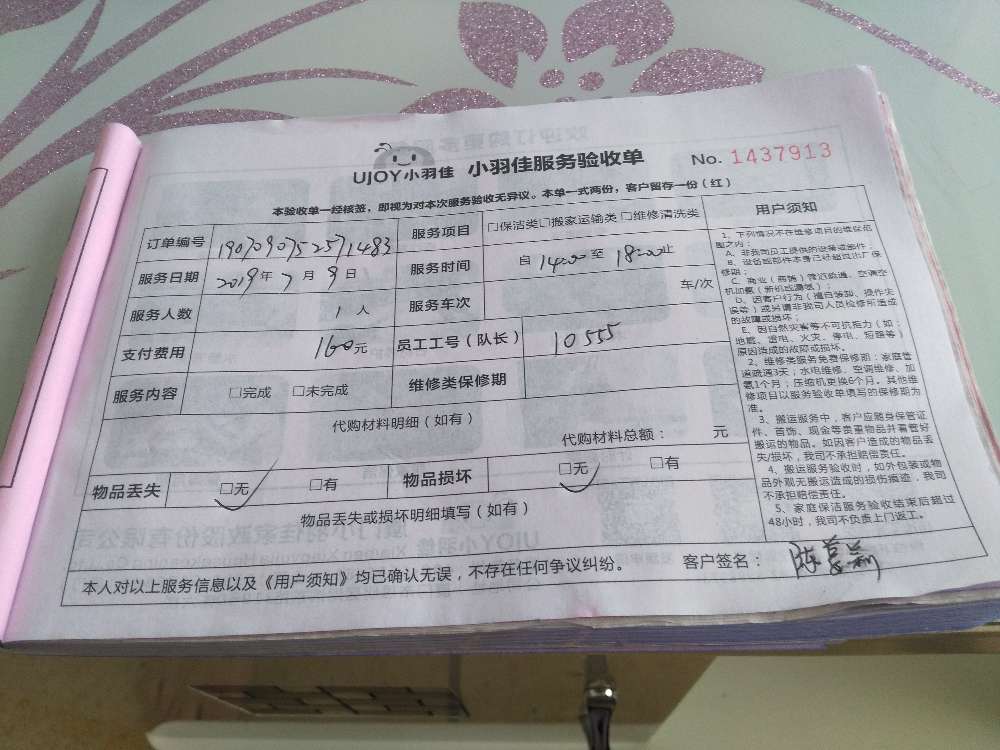 UJOY小羽佳 小羽佳服务验收单 No. 1437913
本验收单一经核签，即视为对本次服务验收无异议。本单一式两份，客户留存一份（红）
订单编号 19070907525571483 服务项目 □保洁类□搬家运输类 □维修清洗类
服务日期 2019年7月9日 服务时间 自 14:00 至 18:00止
服务人数 1 人 服务车次 车/次
支付费用 160元 员工工号（队长） 10555
服务内容 □完成 □未完成 维修类保修期
代购材料明细（如有）
代购材料总额： 元
物品丢失 □无 □有 物品损坏 □无 □有
物品丢失或损坏明细填写（如有）
本人对以上服务信息以及《用户须知》均已确认无误，不存在任何争议纠纷。 客户签名：
用户须知
1、下列情况不在维修项目的维保范
围之内：
A、非我司员工提供的设备或部件；
B、设备或部件本身已经超过出厂保
修期；
C、商业（商铺）管道疏通、空调空
机加氨（新机或漏氨）；
D、因客户行为（擅自装卸、操作失
误等）或另请非我司人员检修所造成
的故障或损坏；
E、因自然灾害等不可抗拒力（如：
地震、雷电、火灾、停电、短路等）
原因造成的故障或损坏。
2、维修类服务免费保修期：家庭管
道疏通3天；水电维修、空调维修、加
氨1个月；压缩机更换6个月。其他维
修项目以服务验收单填写的保修期为
准。
3、搬运服务中，客户应随身保管证
件、首饰、现金等贵重物品并看管好
搬运的物品。如因客户造成的物品丢
失/损坏，我司不承担赔偿责任。
4、搬运服务验收时，如外包装或物
品外观无搬运造成的损伤痕迹，我司
不承担赔偿责任。
5、家庭保洁服务验收结束后超过
48小时，我司不负责上门返工。